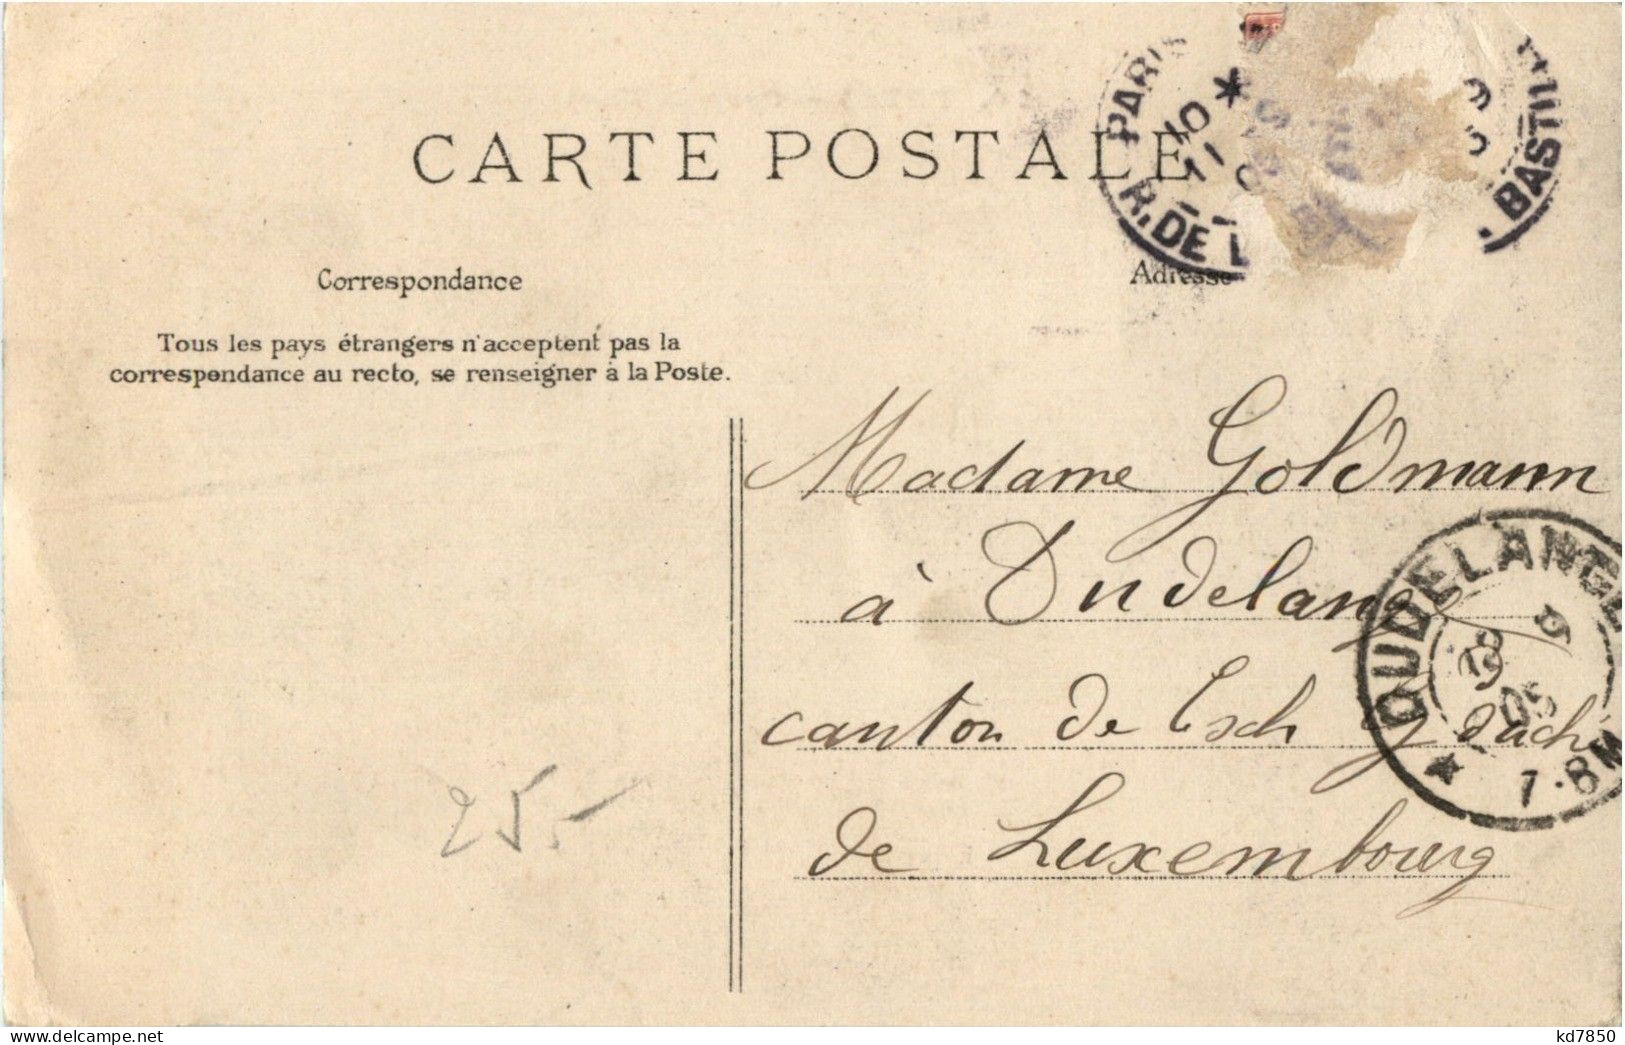 CARTE POSTALE
PARIS
R. DE L
BASTILL
10
11
Correspondance
Adresse
Tous les pays étrangers n'acceptent pas la
correspondance au recto, se renseigner à la Poste.
Madame Goldmann
à Dudelange
canton de Esch G duché
de Luxembourg
DUDELANGE
05
7-8M
25.-
kd7850